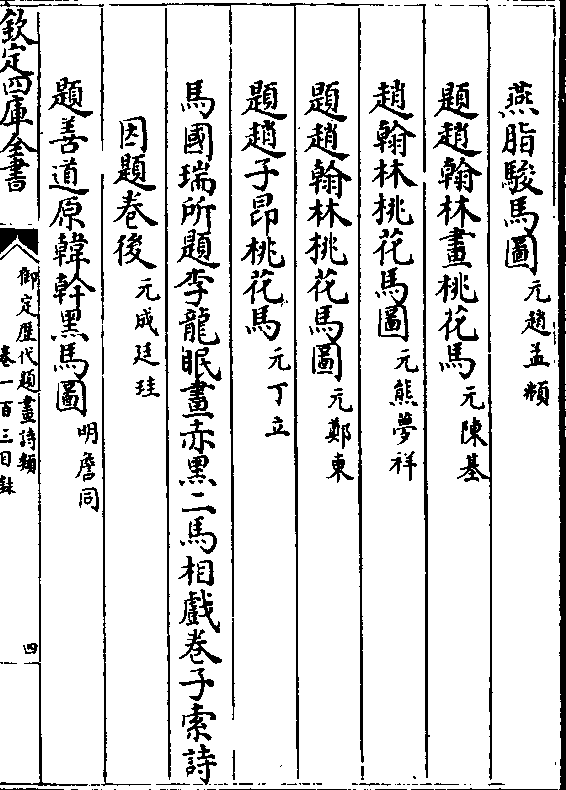 燕脂駿馬圖元趙孟頫
題趙翰林畫桃花馬元陳基
趙翰林桃花馬圖元熊夢祥
題趙翰林桃花馬圖元鄭東
題趙子昂桃花馬元丁立
馬國瑞所題李龍眠畫赤黑二馬相戲卷子索詩
因題卷後元成廷珪
題善道原韓幹黑馬圖明詹同
欽定四庫全書
御定歷代題畫詩類
卷一百三目録
四